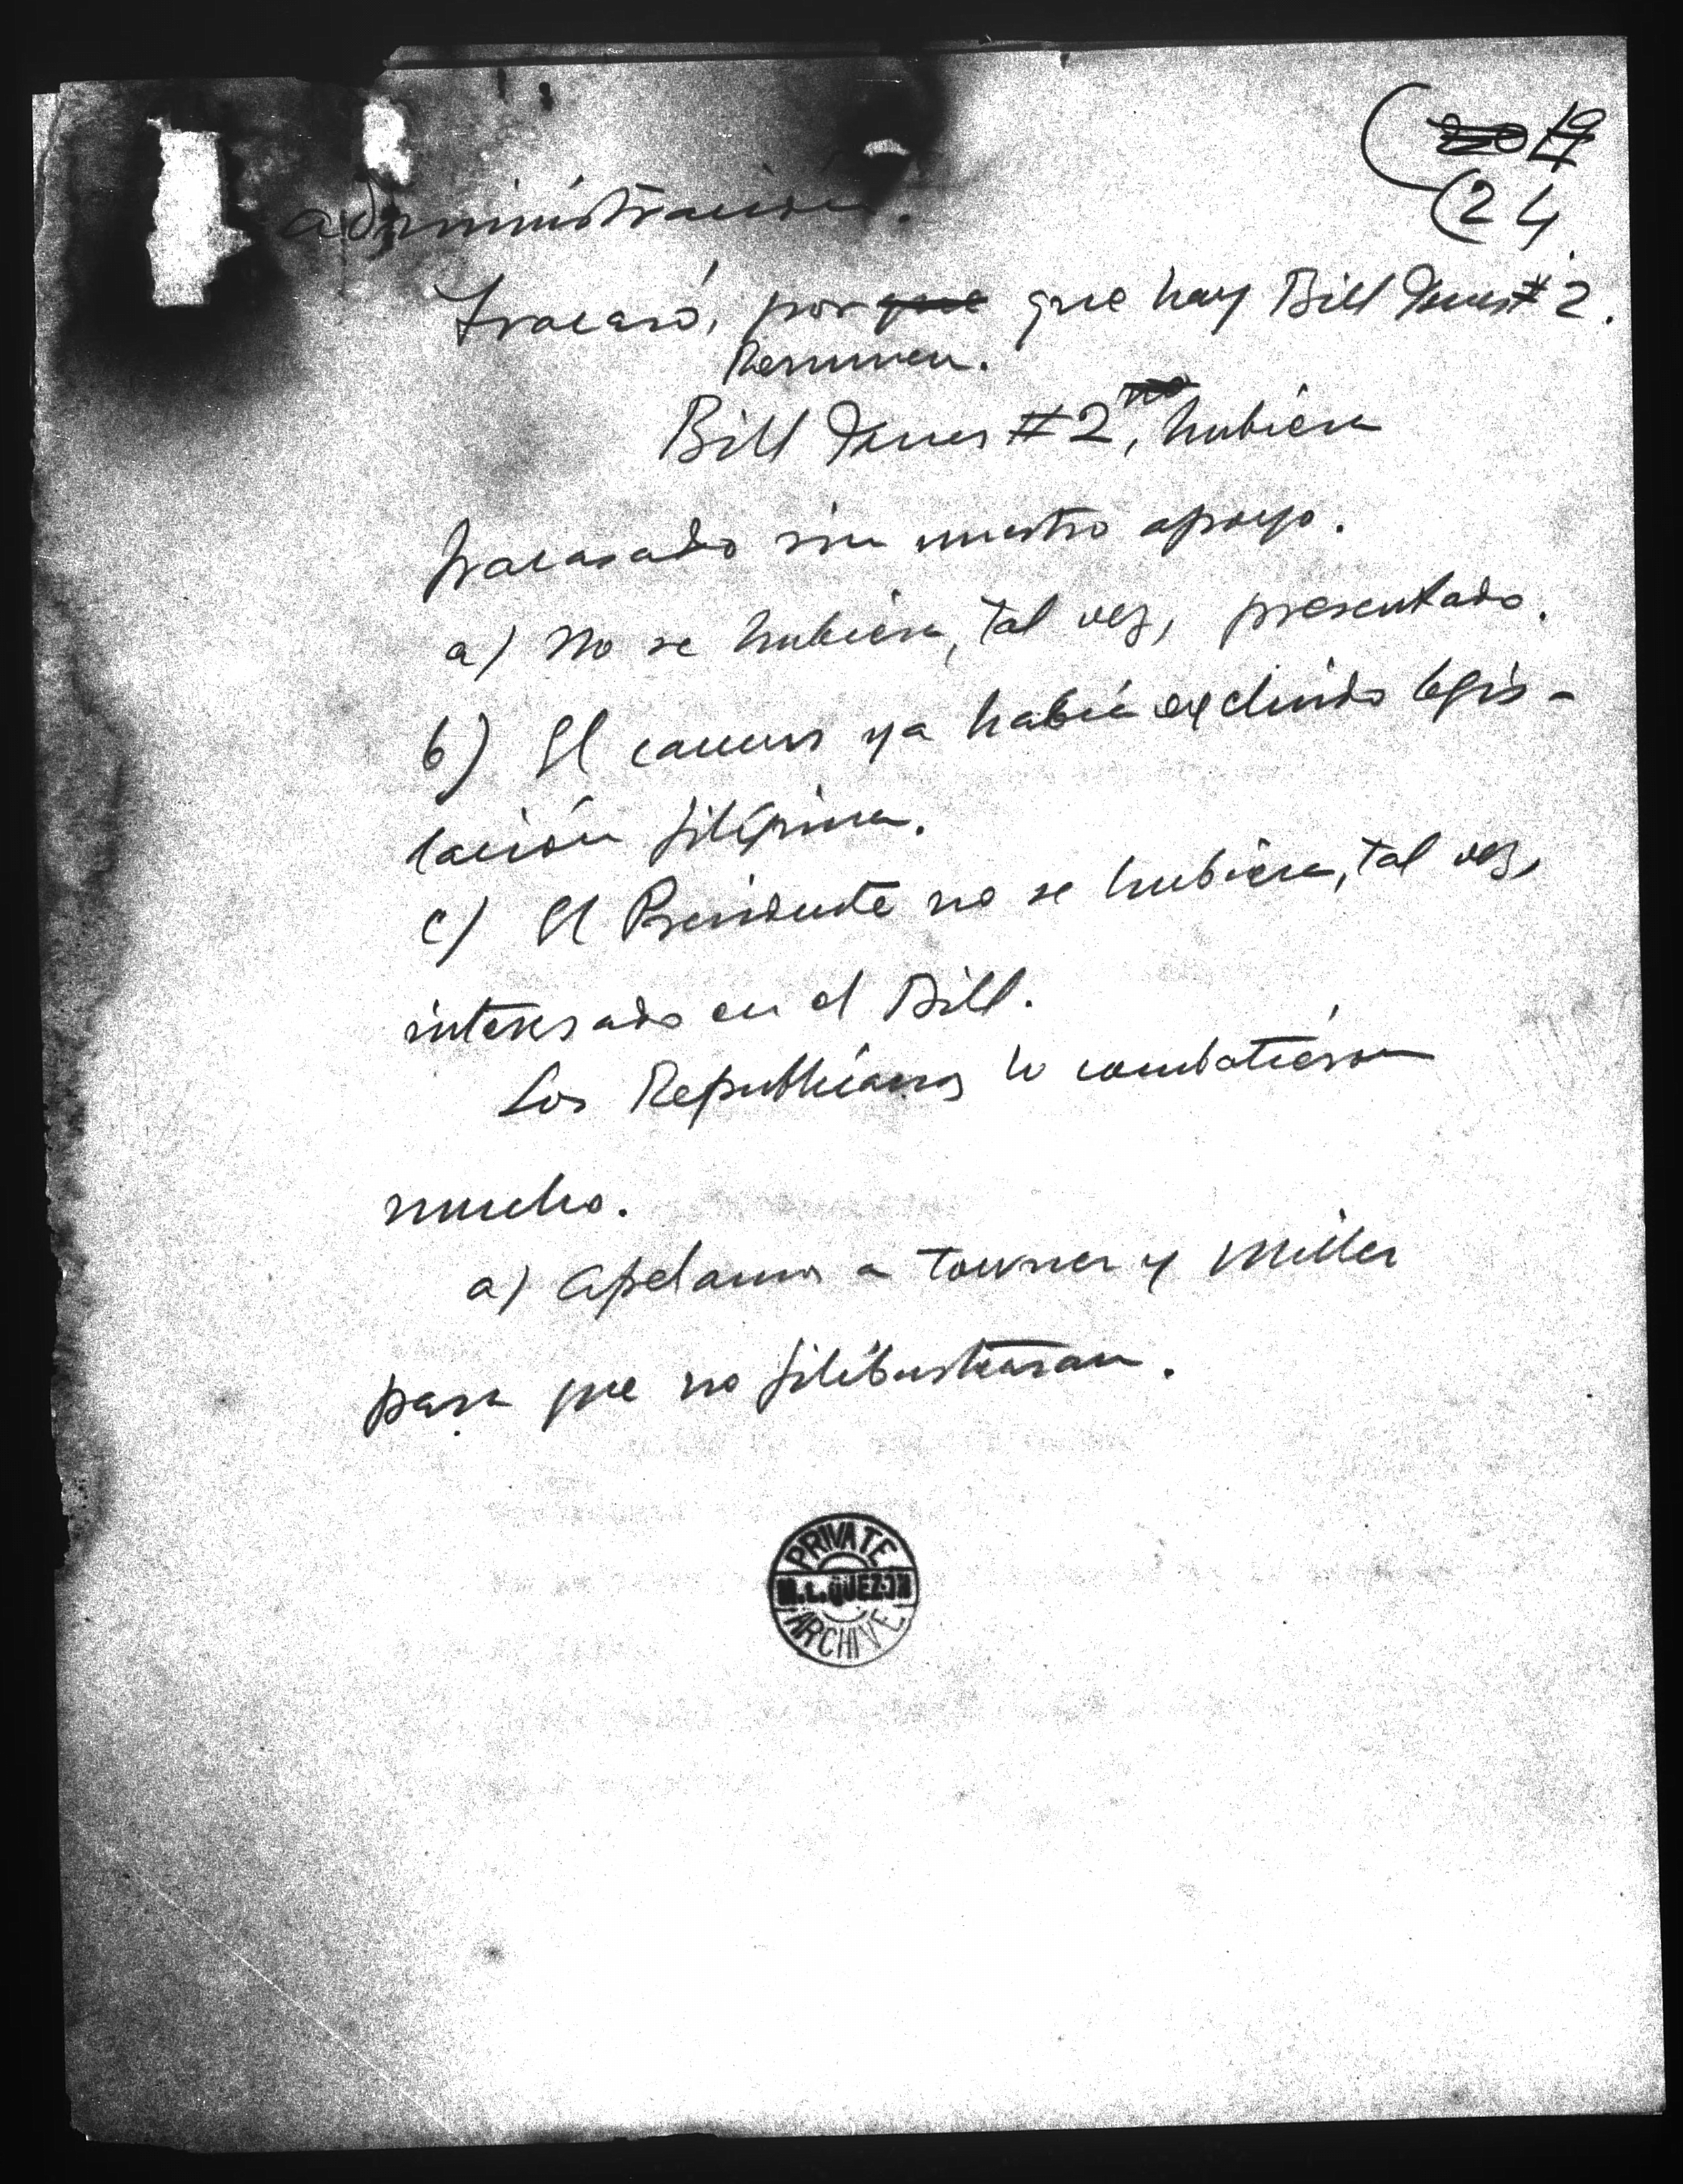 (~~20~~ ~~19~~
(24
administración.
Fracasó, por ~~que~~ que hay Bill Jones # 2.
Resumen.
Bill Jones # 2, ~~no~~ hubiera
fracasado sin nuestro apoyo.
a) No se hubiera, tal vez, presentado.
b) El caucus ya había excluido legis-
lación filipina.
c) El Presidente no se hubiera, tal vez,
interesado en el Bill.
Los Republicanos lo combatieron
mucho.
a) Apelamos a Towner y Miller
para que no filibusteasan.
PRIVATE
M.L.QUEZON
ARCHIVE